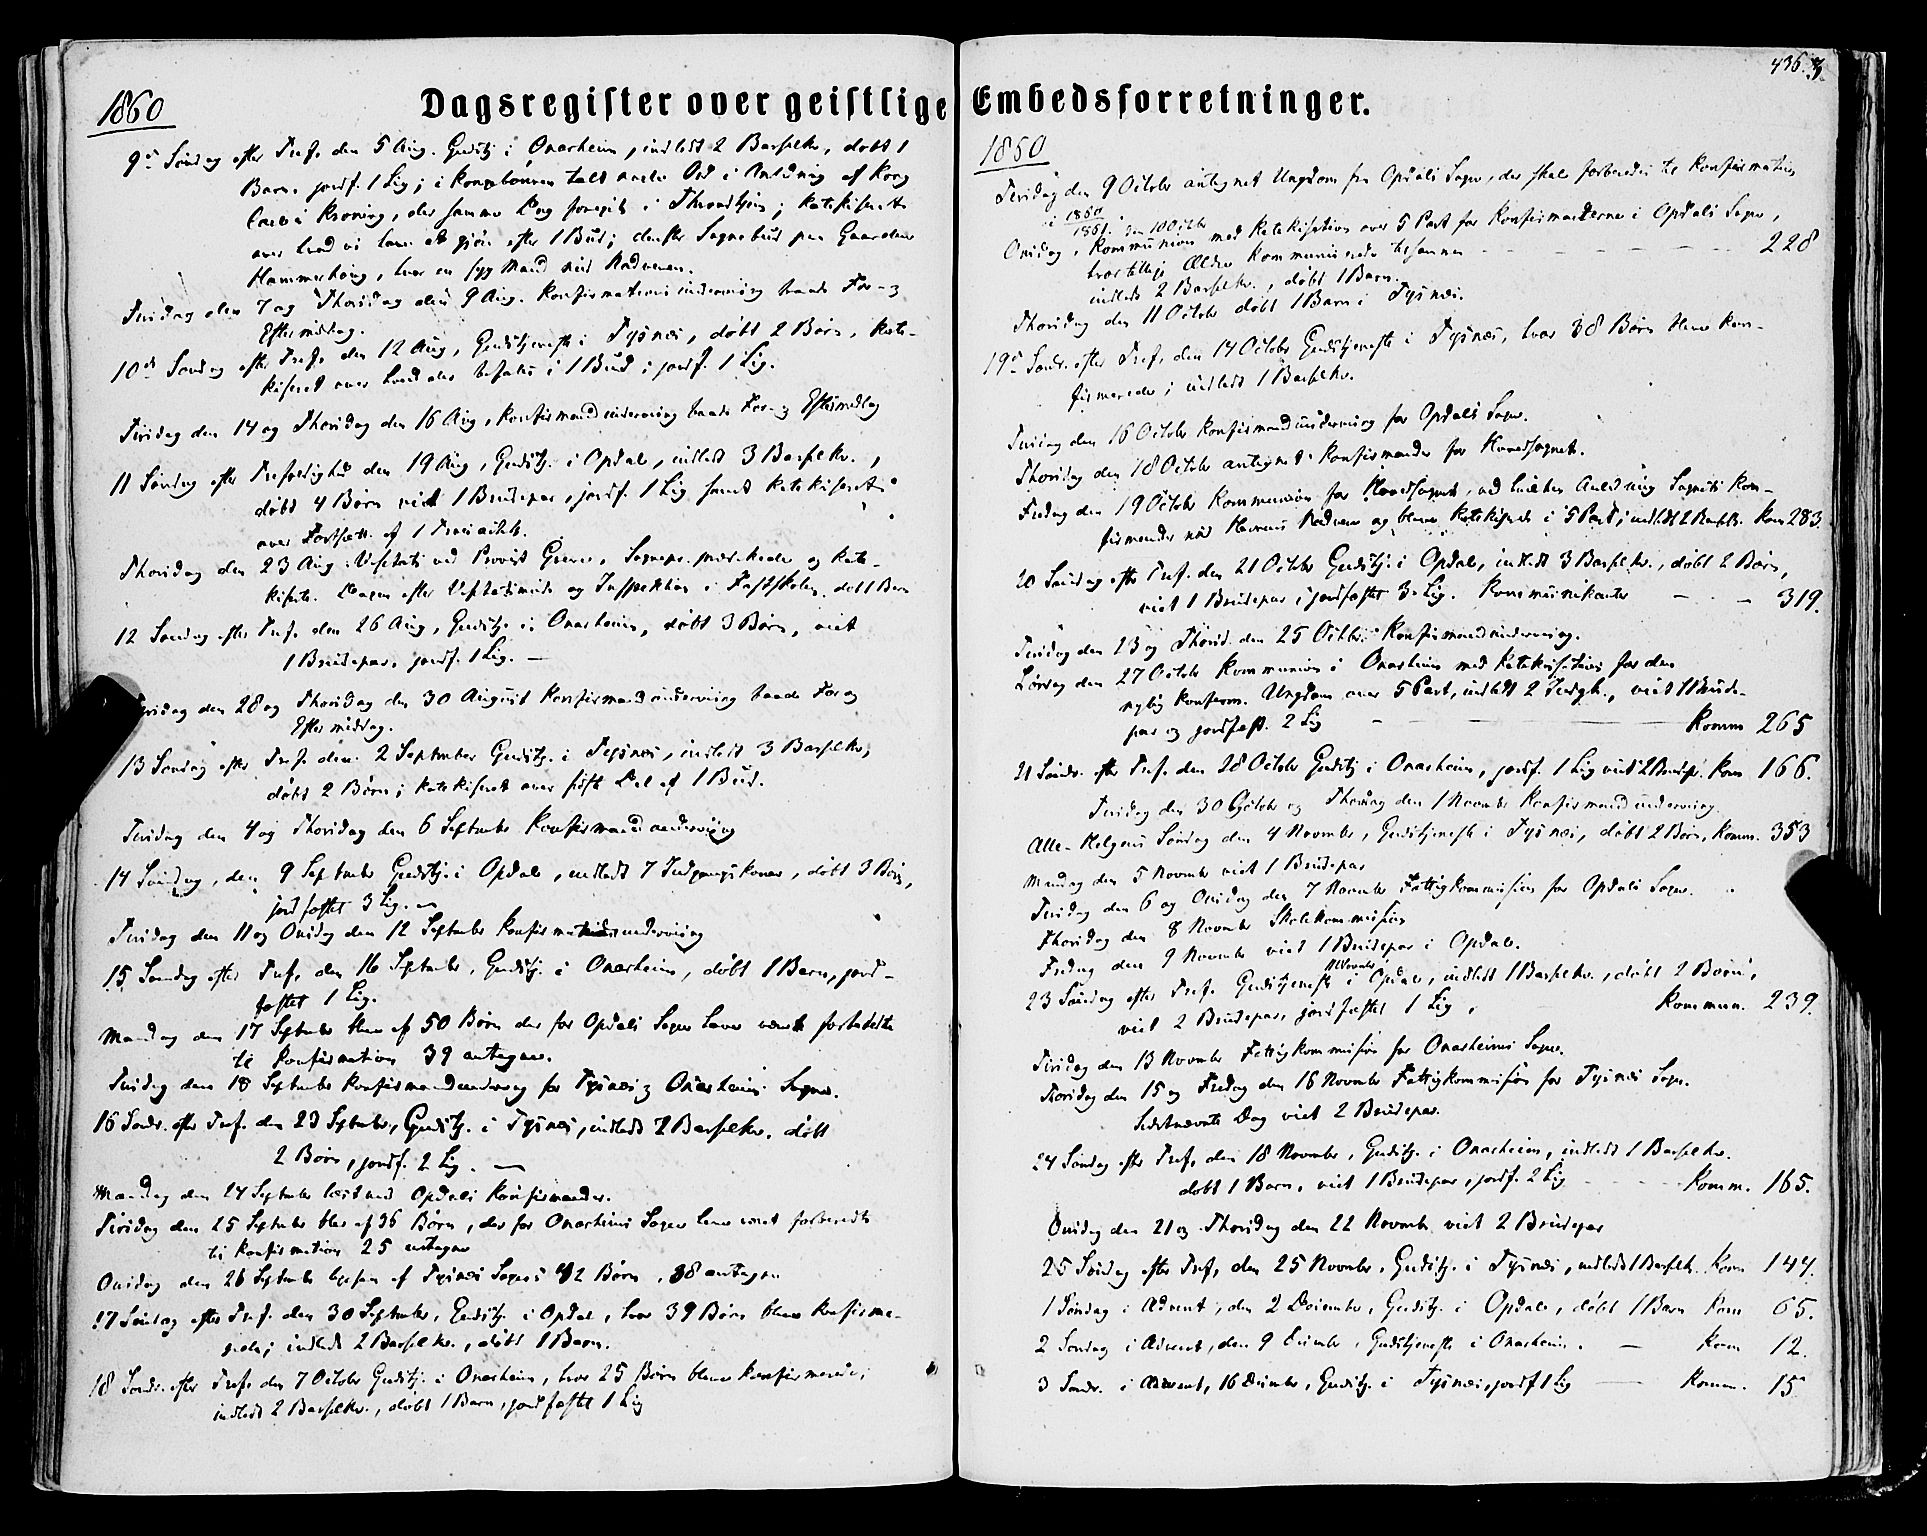 Dagsregister over geistlige Embedsforretninger.
1860
9de Søndag efter Tref. den 5 Aug. Gudstj. i Onarheim, indledt 2 Barselkv., døbt 1
Barn, jordf. 1 Lig; i Kirkebønnen talt nogle Ord i Anledning af Kong
Carls Kroning, der samme Dag foregik i Throndhjem; katekiseret
over hvad vi have at gjøre efter 1 Bud; derefter Sognebud paa Gaarden
Hammerhoug, hvor en syg Mand nød Nadveren.
Tirsdag den 7 og Thorsdag den 9 Aug. Konfirmationsundervisning baade For- og
Eftermiddag.
10de Søndag efter Tref. den 12 Aug, Gudstjeneste i Tysnæs, døbt 2 Børn, kate-
kiseret over hvad der befales i 1 Bud; jordf. 1 Lig.
Tirsdag den 14 og Thorsdag den 16 Aug, Konfirmandundervisning baade For- og Eftermiddag
11 Søndag efter Trefoldighed den 19 Aug, Gudstj. i Opdal, indledt 3 Barselkv.,
døbt 4 Børn, viet 1 Brudepar, jordf. 1 Lig samt katekiseret
over Fortsætt. af 1 Troesartikel.
Thorsdag den 23 Aug. Visitats ved Provst Greve, Sognepr. prædikede og kate-
kiserte. Dagen efter Visitatsmøde og Inspektion i Fastskolen, døbt 1 Barn
12 Søndag efter Tref. den 26 Aug, Gudstj. i Onarheim, døbt 3 Børn, viet
1 Brudepar, jordf. 1 Lig. —
Tirsdag den 28 og Thorsdag den 30 August Konfirmandundervisning baade For og
Eftermiddag.
13 Søndag efter Tref. den 2 September Gudstj. i Tysnæs, indledt 3 Barselkv,
døbt 2 Børn; katekiseret over sidste Del af 1 Bud.
Tirsdag den 4 og Thorsdag den 6 September Konfirmandundervisning
14 Søndag, den 9 September Gudstj. i Opdal, indledt 7 Indgangskoner, døbt 3 Børn,
jordfæstet 3 Lig. —
Tirsdag den 11 og Onsdag den 12 September Konfirmationsundervisning
15 Søndag efter Tref. den 16 September, Gudstj. i Onarheim, døbt 1 Barn, jord-
fæstet 1 Lig.
Mandag den 17 September blev af 50 Børn der for Opdals Sogn have været forberedte
til Konfirmation 39 antagne.
Tirsdag den 18 September Konfirmandundervisng for Tysnæs og Onarheims Sogne.
16 Sønd. efter Tref. den 23 September, Gudstj. i Tysnæs, indledt 2 Barselkv. døbt
2 Børn, jordf. 2 Lig. —
Mandag den 24 September læst med Opdals Konfirmander.
Tirsdag den 25 September blev af 36 Børn, der for Onarheims Sogn have været forberedte
til Konfirmation 25 antagne
Onsdag den 26 September af Tysnæs Sogns 42 Børn, 38 antagne
17 Søndag efter Tref. den 30 September, Gudstj. i Opdal, hvor 39 Børn bleve konfirme-
rede; indledt 2 Barselkv., døbt 1 Barn.
18 Sønd. efter Tref. den 7 October Gudstj. i Onarheim, hvor 25 Børn bleve konfirmerede;
indledt 2 Barselkv., døbt 1 Barn, jordfæstet 1 Lig
436.
1860
Tirsdag den 9 October antegnet Ungdom fra Opdals Sogn, der skal forberedes til Konfirmation
i 1860/1861.
Onsdag, den 10 Octbr Kommunion med Katekisation over 5 Part for Konfirmanderne i Opdals Sogn,
hvortillige Ældre kommunicerede tilsammen — — — 228
indledt 2 Barselkv., døbt 1 Barn.
Thorsdag den 11 October døbt 1 Barn i Tysnæs.
19de Sønd. efter Tref. den 14 October Gudstjeneste i Tysnæs, hvor 38 Børn bleve kon-
firmerede; indledt 1 Barselkv.
Tirsdag den 16 October Konfirmandundervisning for Opdals Sogn.
Thorsdag den 18 October antegnet Konfirmander for Hovedsognet.
Fredag den 19 October Kommunion for Hovedsognet, ved hvilken Anledning Sognets Kon-
firmander nød Herrens Nadvere og bleve katekiserede i 5 Part; indledt 2 Barselk. Kom 283.
20 Søndag efter Tref. den 21 October Gudstj. i Opdal, indledt 3 Barselkv., døbt 2 Børn,
viet 1 Brudepar, jordfæstet 3 Lig. Kommunikanter — — 319.
Tirsdag den 23 og Thorsd. den 25 Octbr. Konfirmandundervisning.
Lørdag den 27 October Kommunion i Onarheim med Katekisation for den
nylig konfirm. Ungdom over 5 Part, indledt 2 Indgk., viet 1 Brude-
par og jordfæst. 2 Lig — — — Komm 265
21 Sønd. efter Tref. den 28 October Gudstj i Onarheim, jordf. 1 Lig viet 2 Brudpr. Kom 166.
Tirsdag den 30 October og Thorsdag den 1 November Konfirmandundervisning.
Alle-Helgens Søndag den 4 November, Gudstjeneste i Tysnæs, døbt 2 Børn, Komm. 353
Mandag den 5 November viet 1 Brudepar
Tirsdag den 6 og Onsdag den 7 November Fattigkommission for Opdals Sogn.
Thorsdag den 8 November Skolekommission
Fredag den 9 November viet 1 Brudepar i Opdal.
23 Søndag efter Tref. 11 November Gudstjeneste i Opdal, indledt 1 Barselkv., døbt 2 Børn,
viet 2 Brudepar, jordfæstet 1 Lig, Kommun. 239.
Tirsdag den 13 November Fattigkommission for Onarheims Sogn.
Thorsdag den 15 og Fredag den 16 November Fattigkommission for Tysnæs Sogn.
Sidstnævnte Dag viet 2 Brudepar.
24 Søndag efter Tref. den 18 November, Gudstj. i Onarheim, indledt 1 Barselkv.
døbt 1 Barn, viet 1 Brudepar, jordf. 2 Lig — — Komm. 165.
Onsdag den 21 og Thorsdag den 22 November viet 2 Brudepar
25 Søndag efter Tref. den 25 November, Gudstj. i Tysnæs, indledt 1 Barselk. Kom 144.
1 Søndag i Advent, den 2 December, Gudstj. i Opdal, døbt 1 Barn Kom 65.
2 Søndag i Advent, den 9 December, Gudstjeneste i Onarheim. — Kom 12.
3 Sønd. i Advent, 16 December, Gudstj. i Tysnæs, jordf 1 Lig — Komm. 15